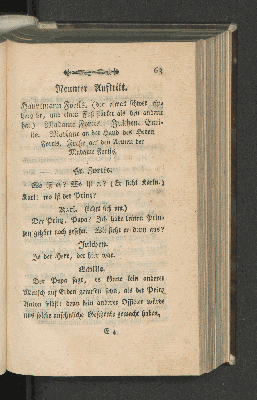 63
Neunter Auftritt.
Hauptmann Fortis. (der etwas schwer
und einen Fuß stärker als den andern
hat.) Madame Fortis. Julchen. Emi-
lie. Madame an der Hand des Herrn
Fortis. an den Armen der
Madame Fortis.
Hr. Fortis.
Wo ist er? Wo ist er? (Er sieht Karln.)
Karl! wo ist der Prinz?
Karl. (sieht sich um.)
Der Prinz, Papa? Ich habe keinen Prin-
zen gehört noch gesehn. Wie sieht er denn aus?
Julchen.
Ja der Herr, der hier war.
Emilie.
Der Papa sagt, es könne kein anderer
Mensch auf Erden gewesen seyn, als der Prinz
Anton selbst; denn kein anderer Officier würde
uns solche ansehnliche Geschenke gemacht haben.
E 4